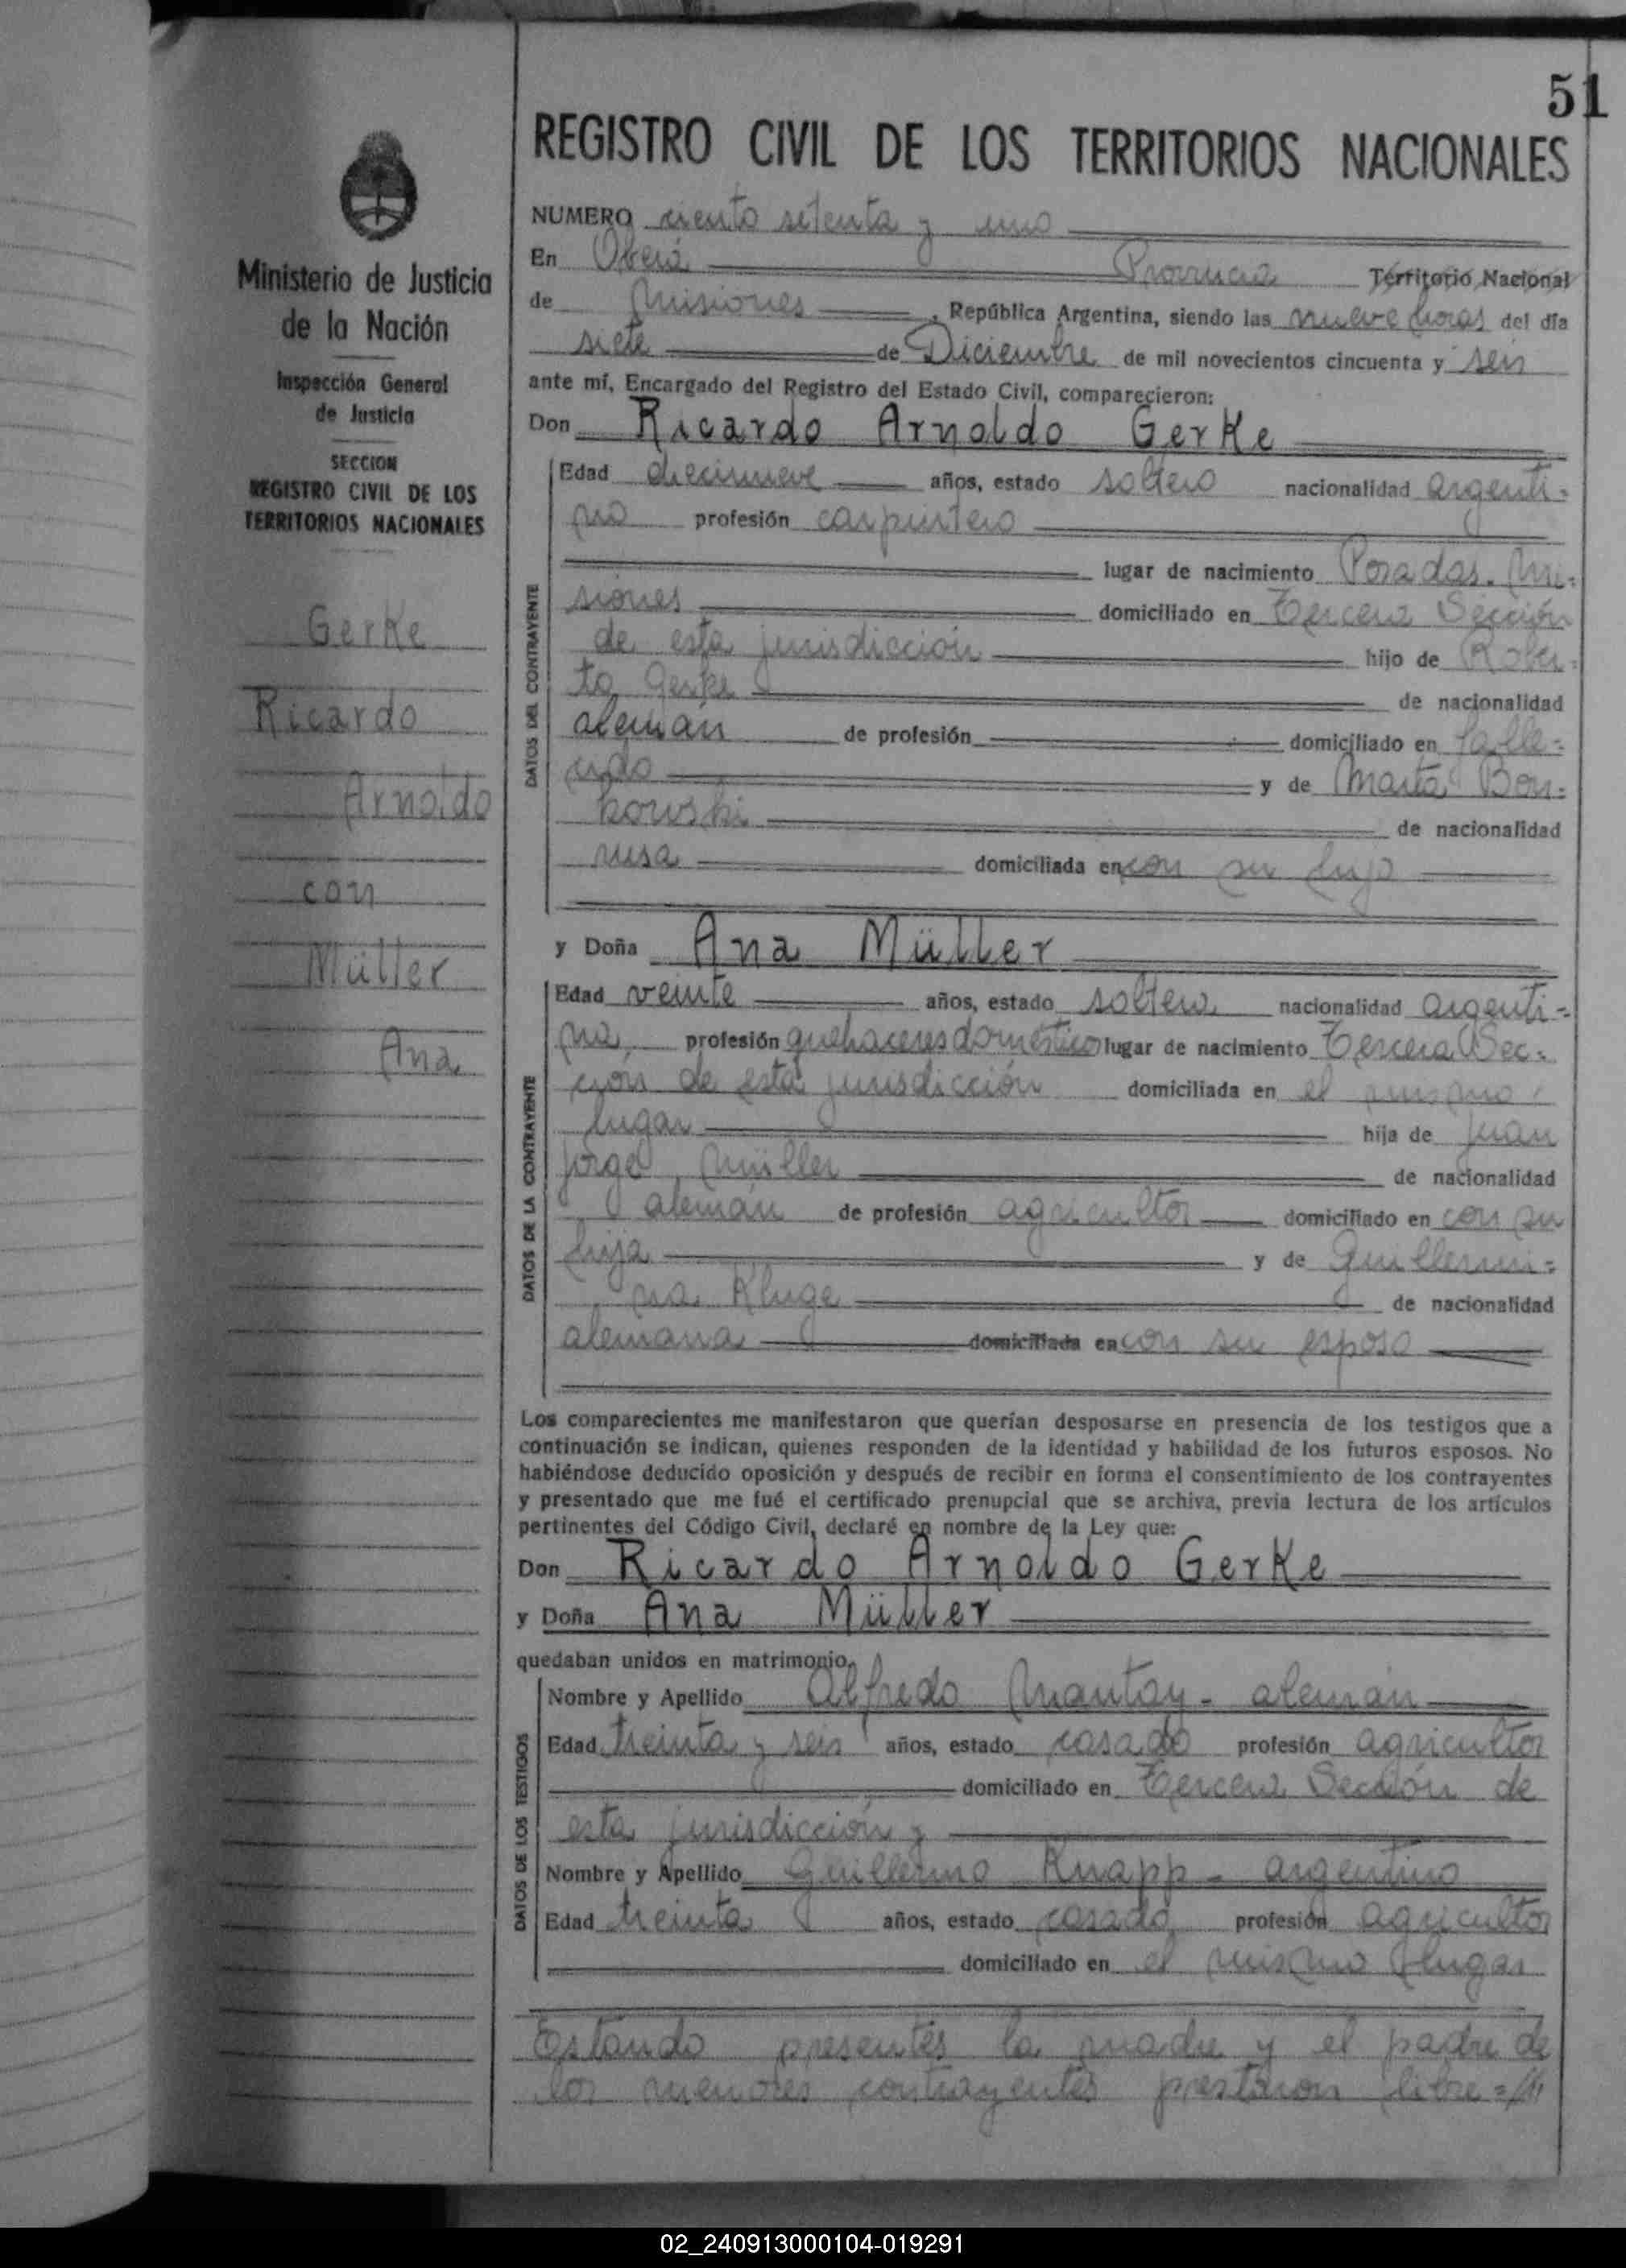 51
REGISTRO CIVIL DE LOS TERRITORIOS NACIONALES
Ministerio de Justicia
de la Nación
Inspección General
de Justicia
SECCION
REGISTRO CIVIL DE LOS
TERRITORIOS NACIONALES
Gerke
Ricardo
Arnoldo
con
Müller
Ana
NUMERO ciento setenta y uno
En Oberá Provincia Territorio Nacional
de Misiones, República Argentina, siendo las nueve horas del día
siete de Diciembre de mil novecientos cincuenta y seis
ante mí, Encargado del Registro del Estado Civil, comparecieron:
Don Ricardo Arnoldo Gerke
DATOS DEL CONTRAYENTE
Edad diecinueve años, estado soltero nacionalidad argenti=
no profesión carpintero
lugar de nacimiento Posadas. Mi=
siones domiciliado en Tercera Sección
de esta jurisdicción hijo de Rober=
to Gerke de nacionalidad
alemán de profesión domiciliado en falle=
cido y de Marta Bon=
kowski de nacionalidad
rusa domiciliada en con su hijo
y Doña Ana Müller
DATOS DE LA CONTRAYENTE
Edad veinte años, estado soltera nacionalidad argenti=
na, profesión quehaceres doméstico lugar de nacimiento Tercera Sec=
ción de esta jurisdicción domiciliada en el mismo
lugar hija de Juan
Jorge Müller de nacionalidad
alemán de profesión agricultor domiciliado en con su
hija y de Guillermi=
na Kluge de nacionalidad
alemana domiciliada en con su esposo
Los comparecientes me manifestaron que querían desposarse en presencia de los testigos que a
continuación se indican, quienes responden de la identidad y habilidad de los futuros esposos. No
habiéndose deducido oposición y después de recibir en forma el consentimiento de los contrayentes
y presentado que me fué el certificado prenupcial que se archiva, previa lectura de los artículos
pertinentes del Código Civil, declaré en nombre de la Ley que:
Don Ricardo Arnoldo Gerke
y Doña Ana Müller
quedaban unidos en matrimonio.
DATOS DE LOS TESTIGOS
Nombre y Apellido Alfredo Mantay - alemán
Edad treinta y seis años, estado casado profesión agricultor
domiciliado en Tercera Sección de
esta jurisdicción y
Nombre y Apellido Guillermo Knapp - argentino
Edad treinta años, estado casado profesión agricultor
domiciliado en el mismo lugar
Estando presentes la madre y el padre de
los menores contrayentes prestaron libre=
02_240913000104-019291